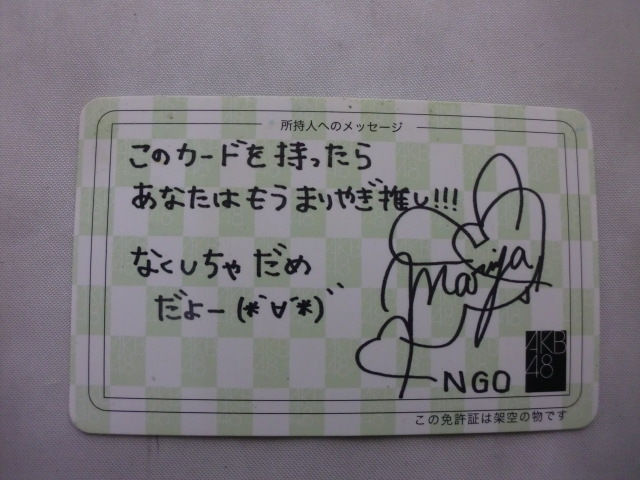 所持人へのメッセージ
このカードを持ったら
あなたはもうまりやぎ推し!!!
なくしちゃだめ
だよー(*´∀`*)
Mariya
NGO
AKB
48
この免許証は架空の物です